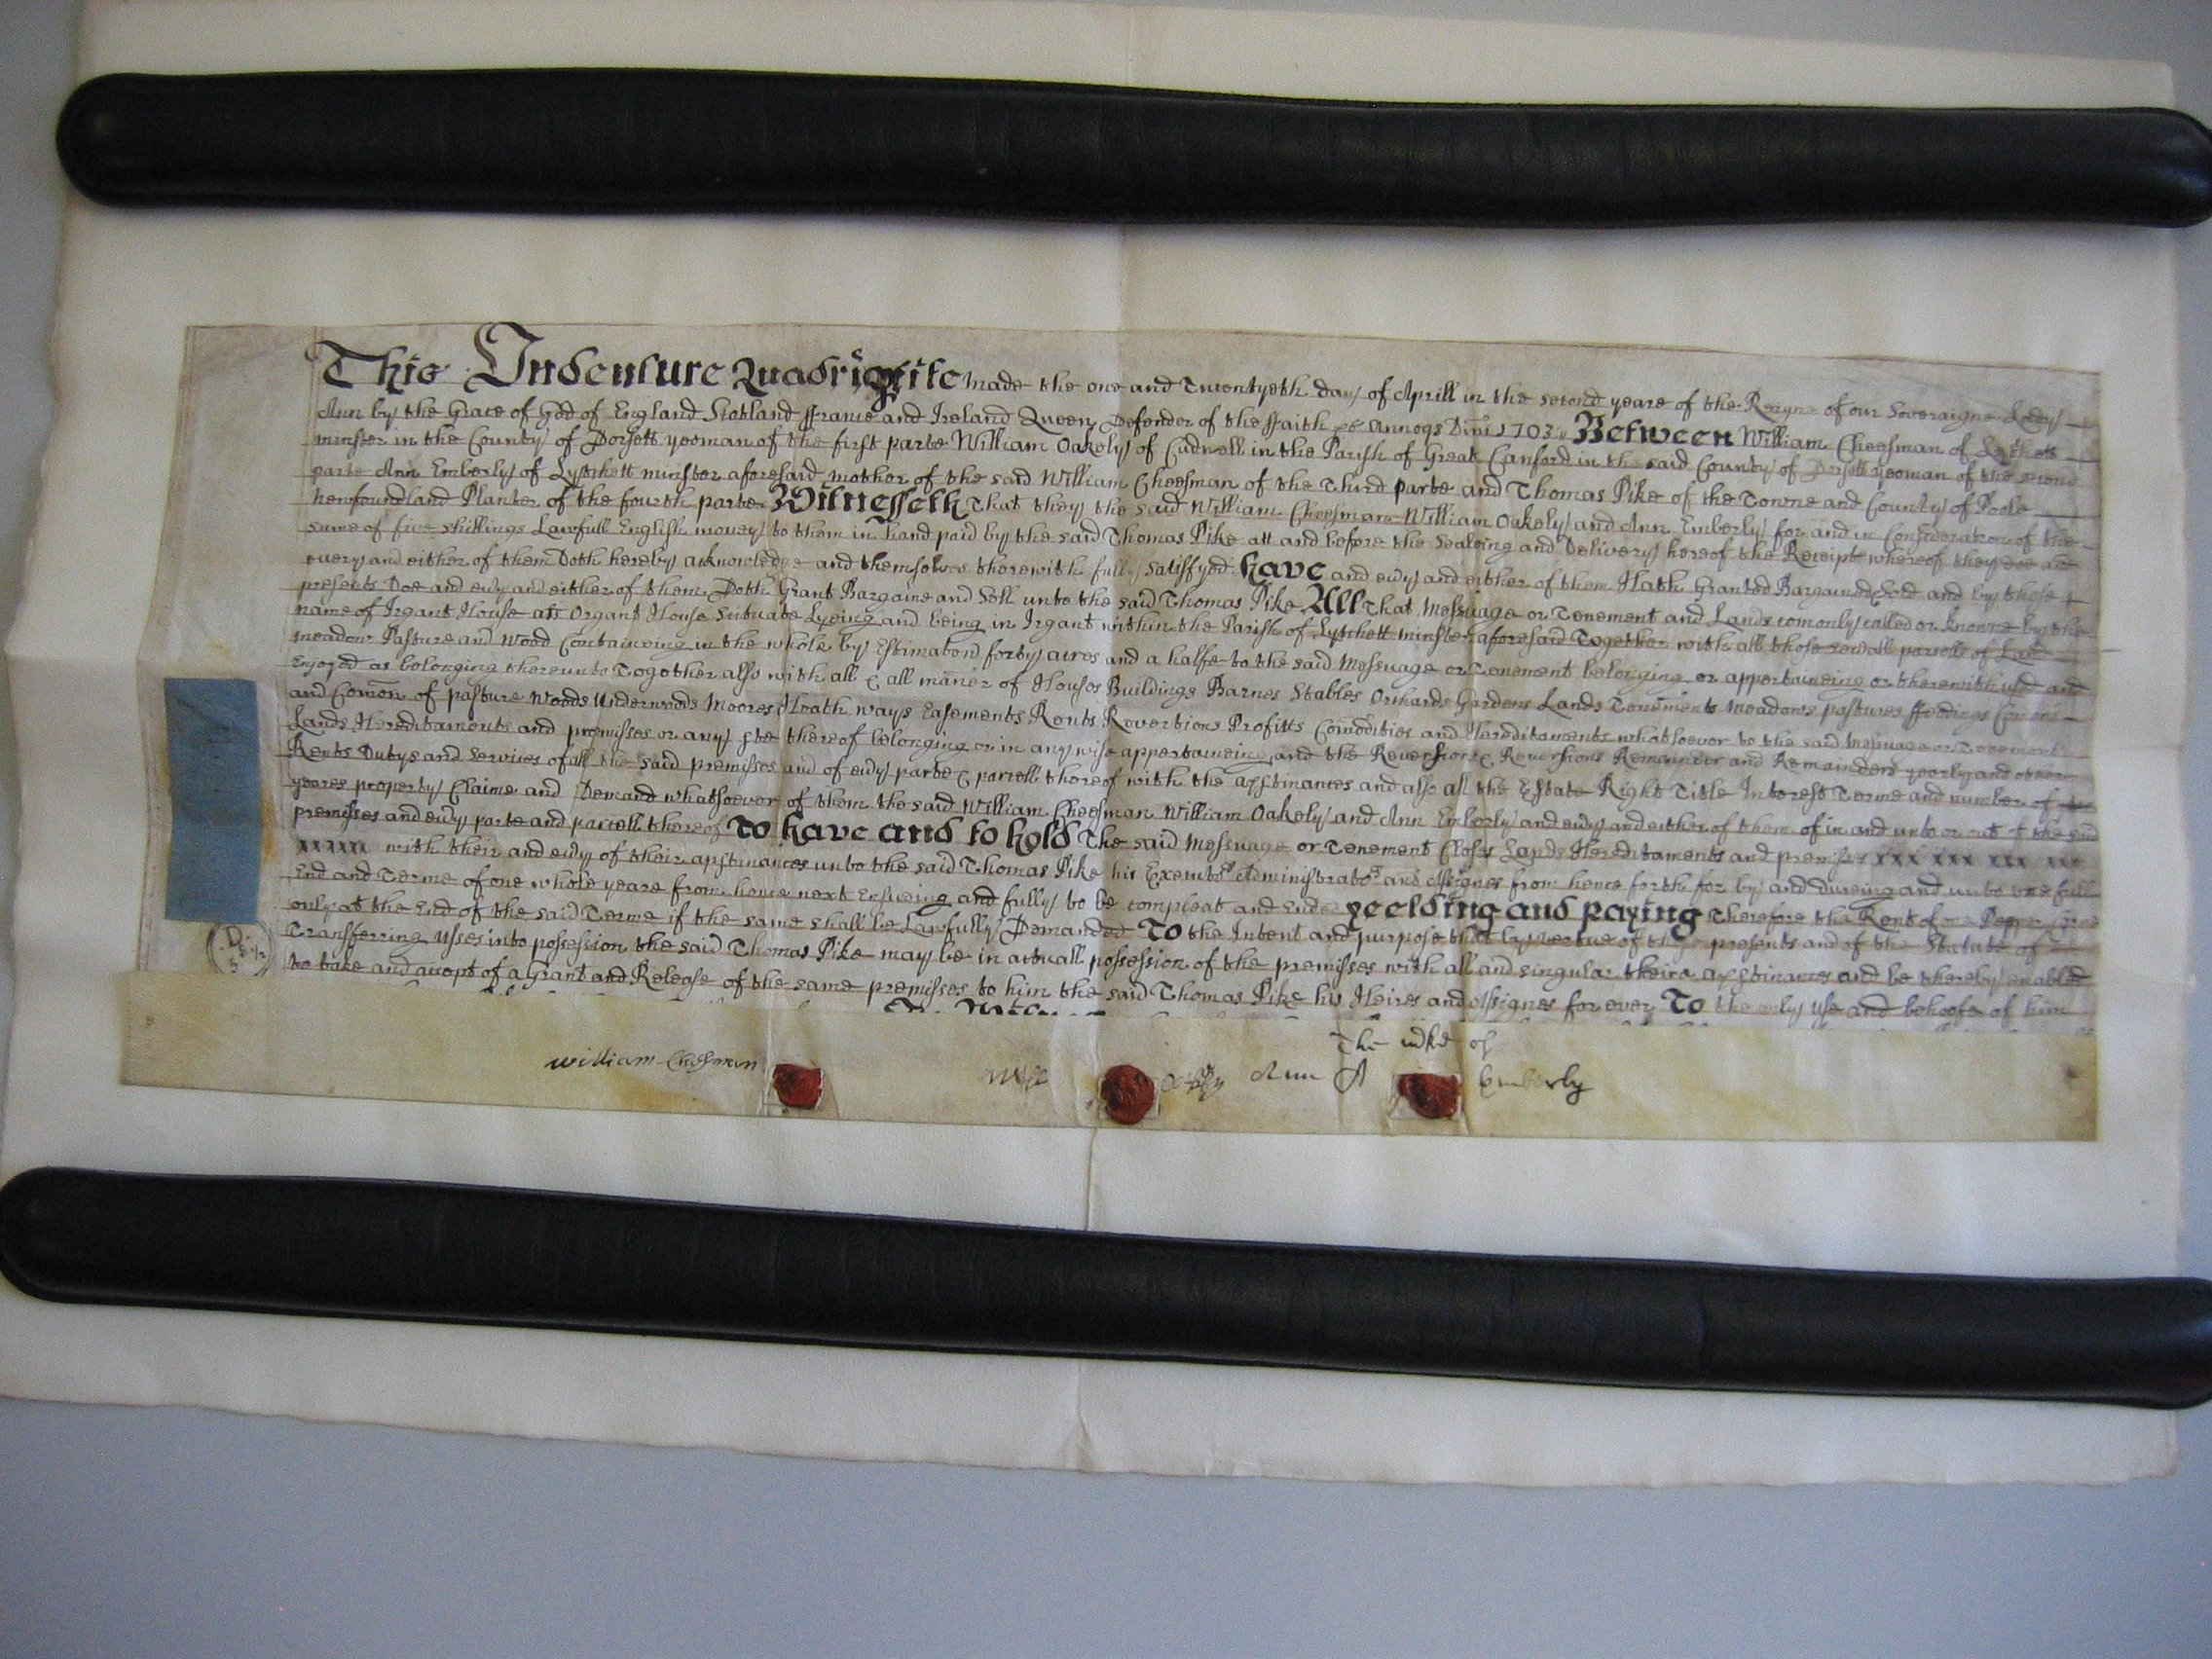 This Indenture Quadripite made the one and Twentyeth day of Aprill in the second yeare of the Reigne of our Soveraigne Lady
Ann by the Grace of God of England Scotland ffrance and Ireland Queen Defender of the ffaith &c Annoqs Dni 1703 Between William Cheesman of Lytchett
minster in the County of Dorsett yeoman of the first parte William Oakely of Cudnell in the Parish of Great Canford in the said County of Dorsett yeoman of the second
parte Ann Emberly of Lytchett minster aforesaid mother of the said William Cheesman of the Third parte and Thomas Pike of the Towne and County of Poole
newfoundland Planter of the fourth parte Witnesseth That they the said William Cheesman William Oakely and Ann Emberly for and in Consideration of the
sume of five shillings Lawfull English money to them in hand paid by the said Thomas Pike att and before the Sealeing and Delivery hereof the Receipt whereof they doe and
every and either of them Doth hereby acknowledge and themselves therewith fully satisfyed have and evy and either of them Hath Granted Bargained Sold and by these
presents Doe and evy and either of them Doth Grant Bargaine and Sell unto the said Thomas Pike All That Messuage or Tenement and Lands comonly called or knowne by the
name of Irgant House als Organt House Scituate Lyeing and being in Irgant within the Parish of Lytchett minster aforesaid Together with all those sevall parcells of Land
meadow Pasture and Wood Containeing in the whole by Estimation forty acres and a halfe to the said Messuage or Tenement belonging or appertaineing or therewith used and
Enjoyed as belonging thereunto Together also with all & all maner of Houses Buildings Barnes Stables Orchards Gardens Lands Tenements meadows pastures ffeedings Comons
and Comon of pasture Woods Underwoods Moores Heath ways Easements Rents Revertions Profitts Comodities and Hereditaments whatsoever to the said Messuage or Tenement
Lands Hereditaments and premisses or any pte thereof belonging or in any wise appertaineing and the Revertion & Revertions Remainder and Remainders yearly and other
Rents Dutys and Services of all the said premisses and of evy parte & parcell thereof with the apptinances and also all the Estate Right Title Interest Terme and number of
yeares property Claime and Demand whatsoever of them the said William Cheesman William Oakely and Ann Emberly and evy and either of them of in and unto or out of the said
premisses and evy parte and parcell thereof To have and to hold The said Messuage or Tenement Closes Lands Hereditaments and premisses xxx xxx xxx xxx xxx
xxxxx with their and evy of their aptinances unto the said Thomas Pike his Executors Administrators and Assignes from hence forth for by and dureing and unto one full
End and Terme of one whole yeare from hence next Ensueing and fully to be compleat and ended yeelding and paying Therefore the Rent of one Pepper Corne
only at the End of the said Terme if the same shall be Lawfully Demanded To the Intent and purpose that by vertue of these presents and of the Statute of
Transferring Usses into possession the said Thomas Pike may be in actuall possession of the premisses with all and singular their apptinances and be thereby enabled
to take and accept of a Grant and Release of the same premisses to him the said Thomas Pike his Heires and Assignes for ever To the only use and behoofe of him
The mke of
William Chesman Oakely Ann A Emberly